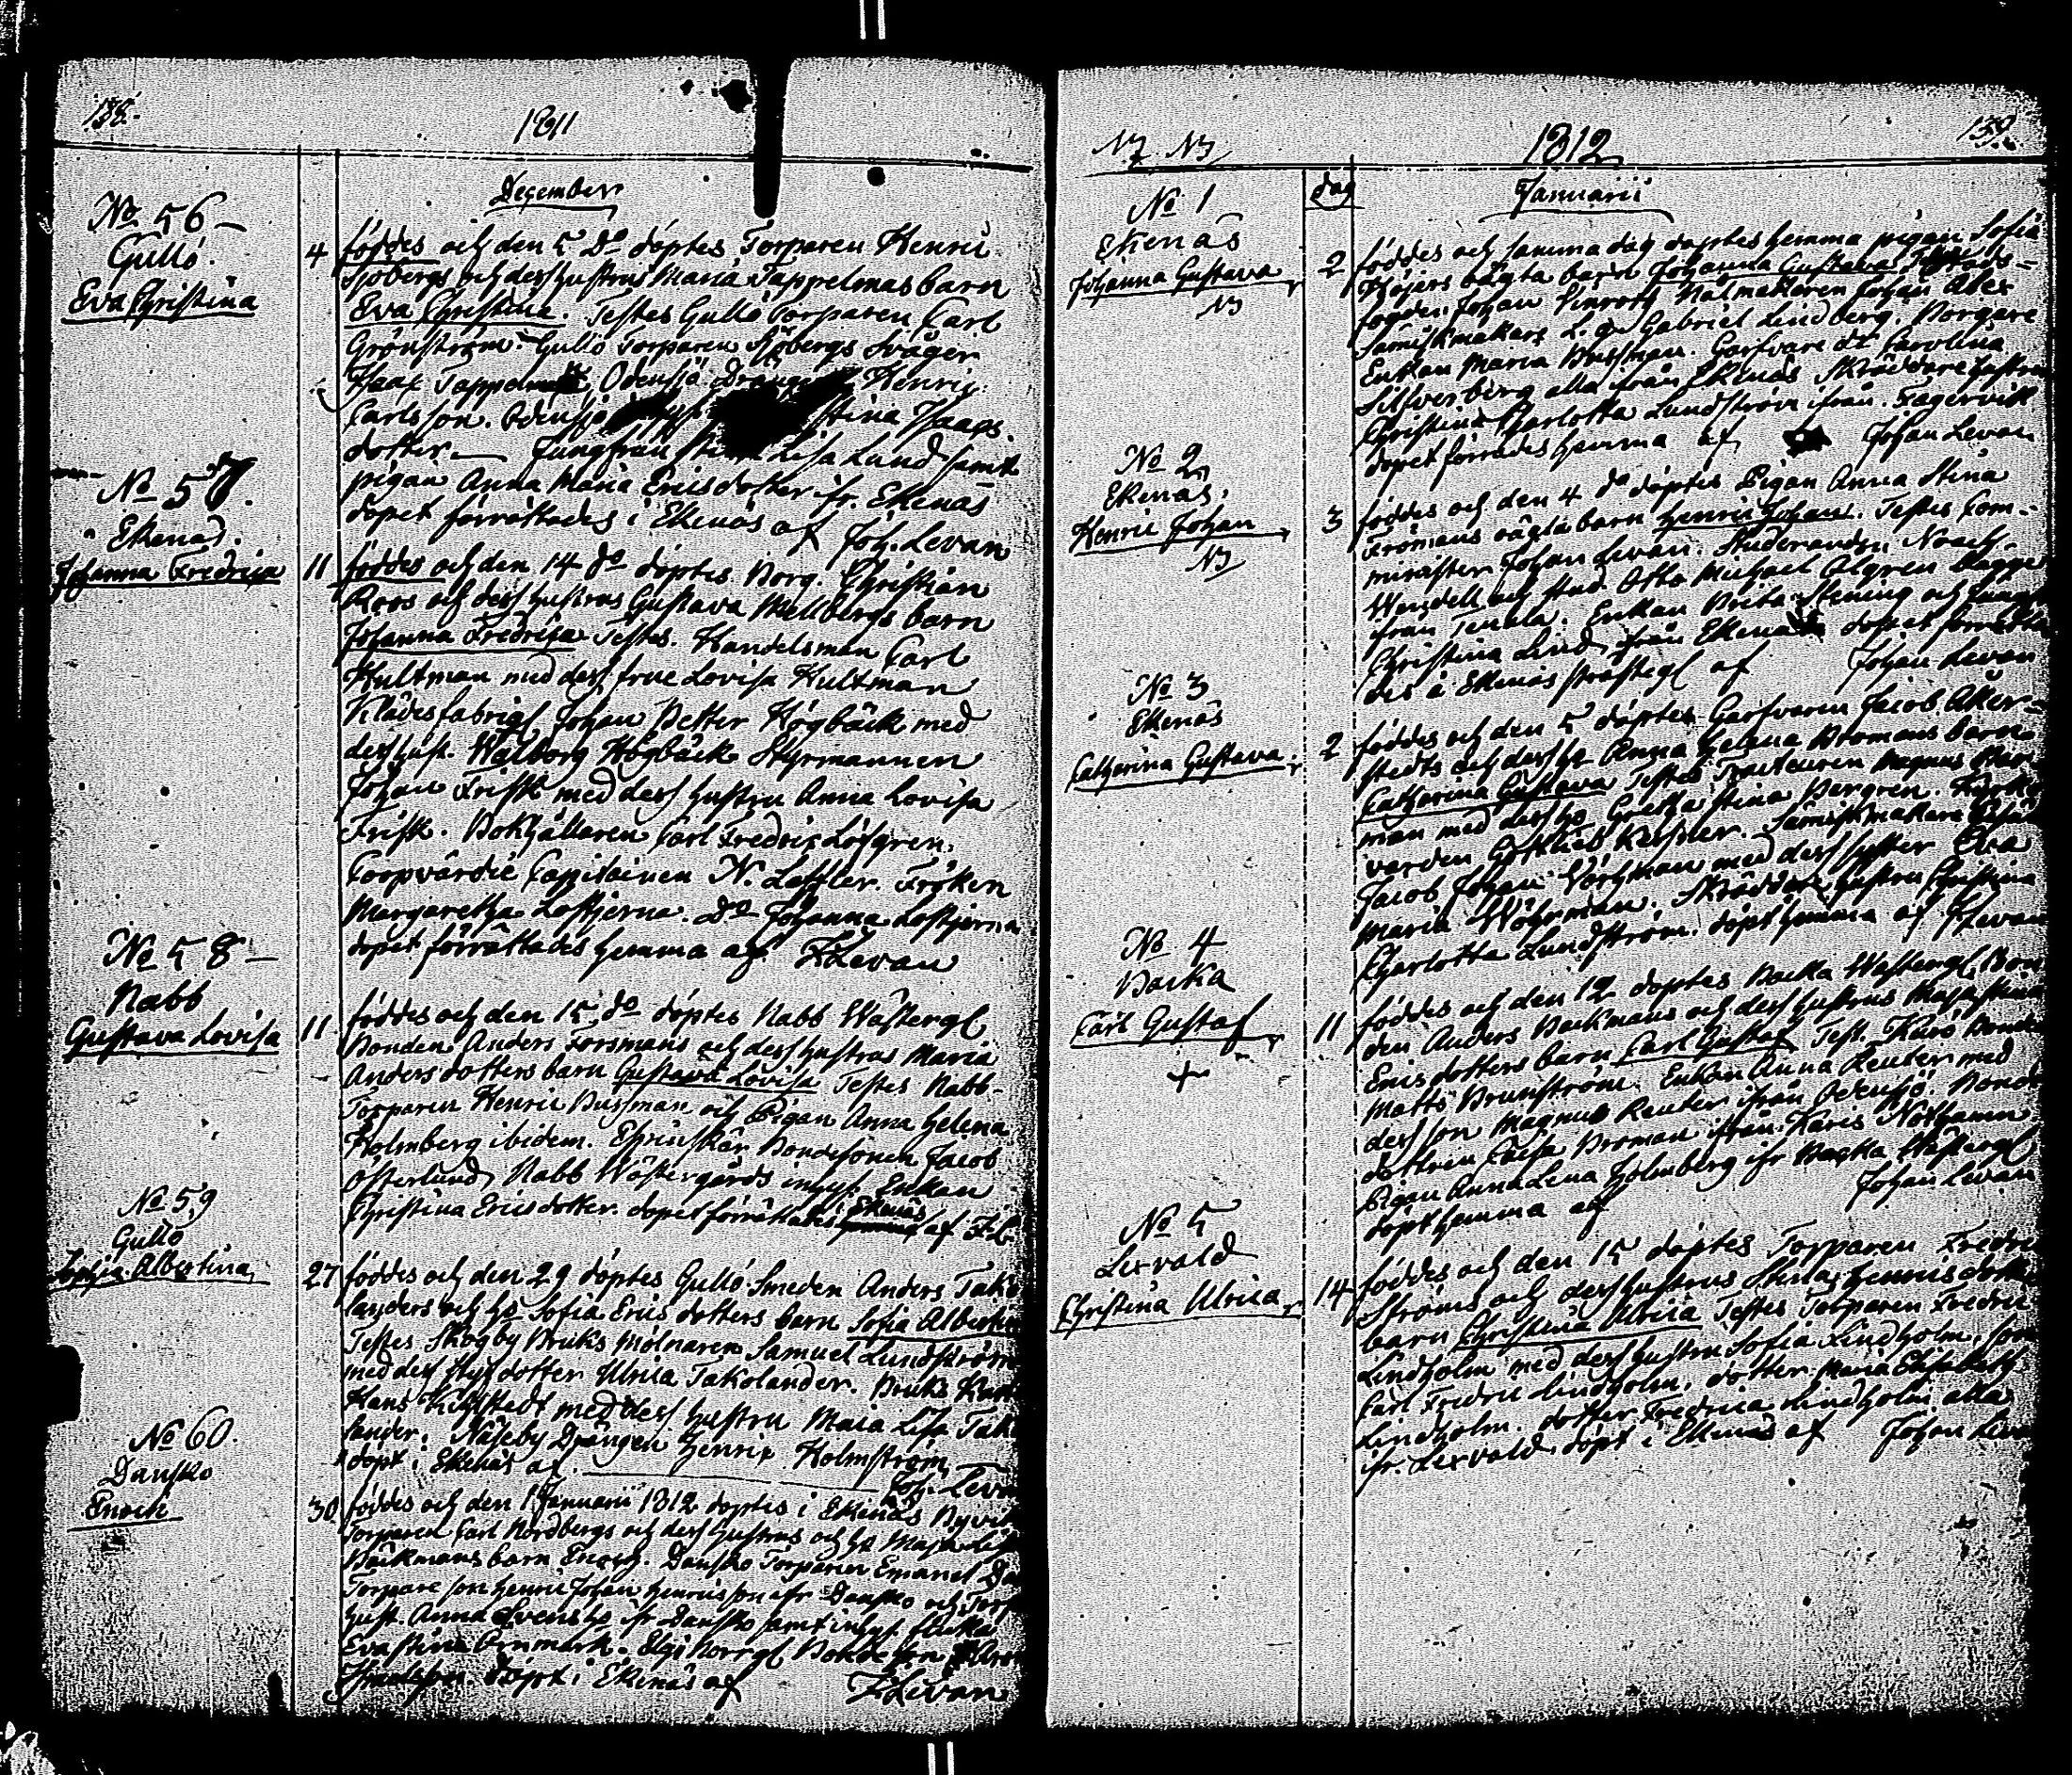 138.
1811
December
No 56 –
Gullö.
Eva Christina
4 föddes och den 5 do döptes Torparen Henric
Sjöbergs och dess hustrus Maria Tappelmas barn
Eva Christina. Testes Gullö Torparen Carl
Grönström – Gullö Torparen Sjöbergs Svåger
Isaac Odensjö Henric
Carlsson. stina Isaacs
dotter. – Jungfrun Lisa Lund samt
pigan Anna Maria Ericsdotter ifr. Ekenäs
dopet förrättades i Ekenäs af Joh. Levan
No 57.
Ekenäs.
Johanna Fredrica
11 föddes och den 14 do döptes Borg. Christian
Roos och dess hustrus Gustava Mellbergs barn
Johanna Fredrica Testes. Handelsman Carl
Hultman med dess frue Lovisa Hultman
Klädesfabriq Johan Petter Högbäck med
dess hust. Walborg Högbäck Styrmannen
Johan Frisk med dess hustru Anna Lovisa
Frisk. Bokhållaren Carl Fredric Löfgren.
Coopvardie Capitainen N. Leffler. Fröken
Margaretha Lostjerna. Do Johanna Lostjerna
dopet förrättades hemma af J Levan
No 58 –
Nabb
Gustava Lovisa
11 föddes och den 15 do döptes Nabb Wästergd
Bonden Anders Forsmans och dess hustrus Maria
Anders dotters barn Gustava Lovisa Testes Nabb
Torparen Henric Bussman och Pigan Anna Helena
Holmberg ibidem. Bondesonen Jacob
Österlund, Nabb Wästergårds inhys. Enkan
Christina Ericsdotter. dopet förrättades Ekenäs af J. L.
No 59
Gullö
Sophia Albertina
27 föddes och den 29 döptes Gullö Smeden Anders Tako
landers och ho Sofia Erics dotters barn Sofia Albertin
Testes Skogby Bruks Mölnaren Samuel Lundström
med dess Styfdotter Ulrica Takolander. Bruks
Hans med dess hustru Maia Lisa Tako
lander. Näseby Drängen Henric Holmström
döpt i Ekenäs af. Joh. Levan
No 60.
Danskö
Enock
30 föddes och den 1 Januarii 1812 döptes i Ekenäs
Torparen Carl Nordbergs och dess hustrus och ho Maja Lisa
Bäckmans barn Enoch. Danskö Torparen Emanel
Torpare son Henric Johan Henricsson ifr Danskö och Torp
hust. Anna Svensdo ifr Danskö samt inhys. flicka
Eva Stina Elgö Norrgd Bondeson
döpt i Ekenäs af J Levan
139.
1812
Januarii
dag
No 1
Ekenäs
Johanna Gustava
2 föddes och samma dag döptes hemma pigan Sofia
Höijers oägta barn Johanna Gustava
fogden Johan Vinroth Målmästaren Johan
Sämskmakare Gabriel Lindberg. Borgare
Enkan Maria Bussman. Garfvare Carolina
Silfverberg alla ifrån Ekenäs Skräddare hustrun
Christina Charlotta Lundström ifrån. Fagervik
dopet förrättades hemma af Johan Levan
No 2
Ekenäs,
Henric Johan
3 föddes och den 4 do döptes Pigan Anna Stina
Frömans oägta barn Henric Johan. Testes Com-
minister Johan Levan. Studeranden
och stud. Otto Michael Algren bägge
från Tenala. Enkan Brita och
Christina Lind från Ekenäs dopet förrätta
des å Ekenäs af Johan Levan
No 3
Ekenäs
Catharina Gustava
2 föddes och den 5 döptes Garfvaren Jacob Åker-
stedts och dess ho Anna Helena Bromans barn
Catharina Gustava Testes Traiteuren Magnus
man med dess ho Gretha Stina Bergren.
varden Gottlieb Kessler. Sämskmakare
Jacob Johan Wöhrman med dess syster Eva
Maria Wöhrman. Skräddare hustru Christina
Charlotta Lundström. döpt hemma af J Levan
No 4
Backa
Carl Gustaf
11 föddes och den 12 döptes Backa Wästergd Bon
den Anders Backmans och dess hustrus Maja Stina
Erics dotters barn Carl Gustaf Test. Bonden
Matts Brunström. Enkan Anna Reuter med
dess son Magnus Reuter ifrån Odensjö. Bonde
dottren Cajsa Broman ifrån Karis
Pigan Anna Lena Holmberg ifr Backa Wästergd
döpt hemma af Johan Levan
No 5
Lexvald
Christina Ulrica
14 föddes och den 15 döptes Torparen Fredric
Ströms och dess hustrus Stina Henrics dott
barn Christina Ulrica Testes Torparen Fredric
Lindholm med dess hustru Sofia Lindholm. son
Carl Fredric Lindholm, dotter Maria Elisabeth
Lindholm. dotter Fredrica Lindholm alla
ifr. Lexvald döpt i Ekenäs af Johan Levan